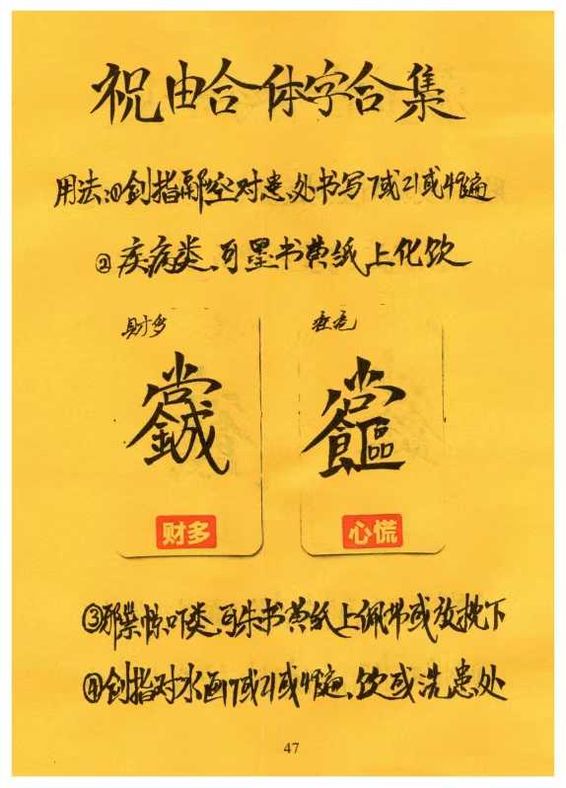 祝由合体字合集
用法:①剑指隔空对患处书写7或21或49遍
②疾病类、可墨书黄纸上化饮
财多
财多 心慌
③邪祟惊吓类、可朱书黄纸上佩带或放枕下
④剑指对水画7或21或49遍、饮或洗患处
47